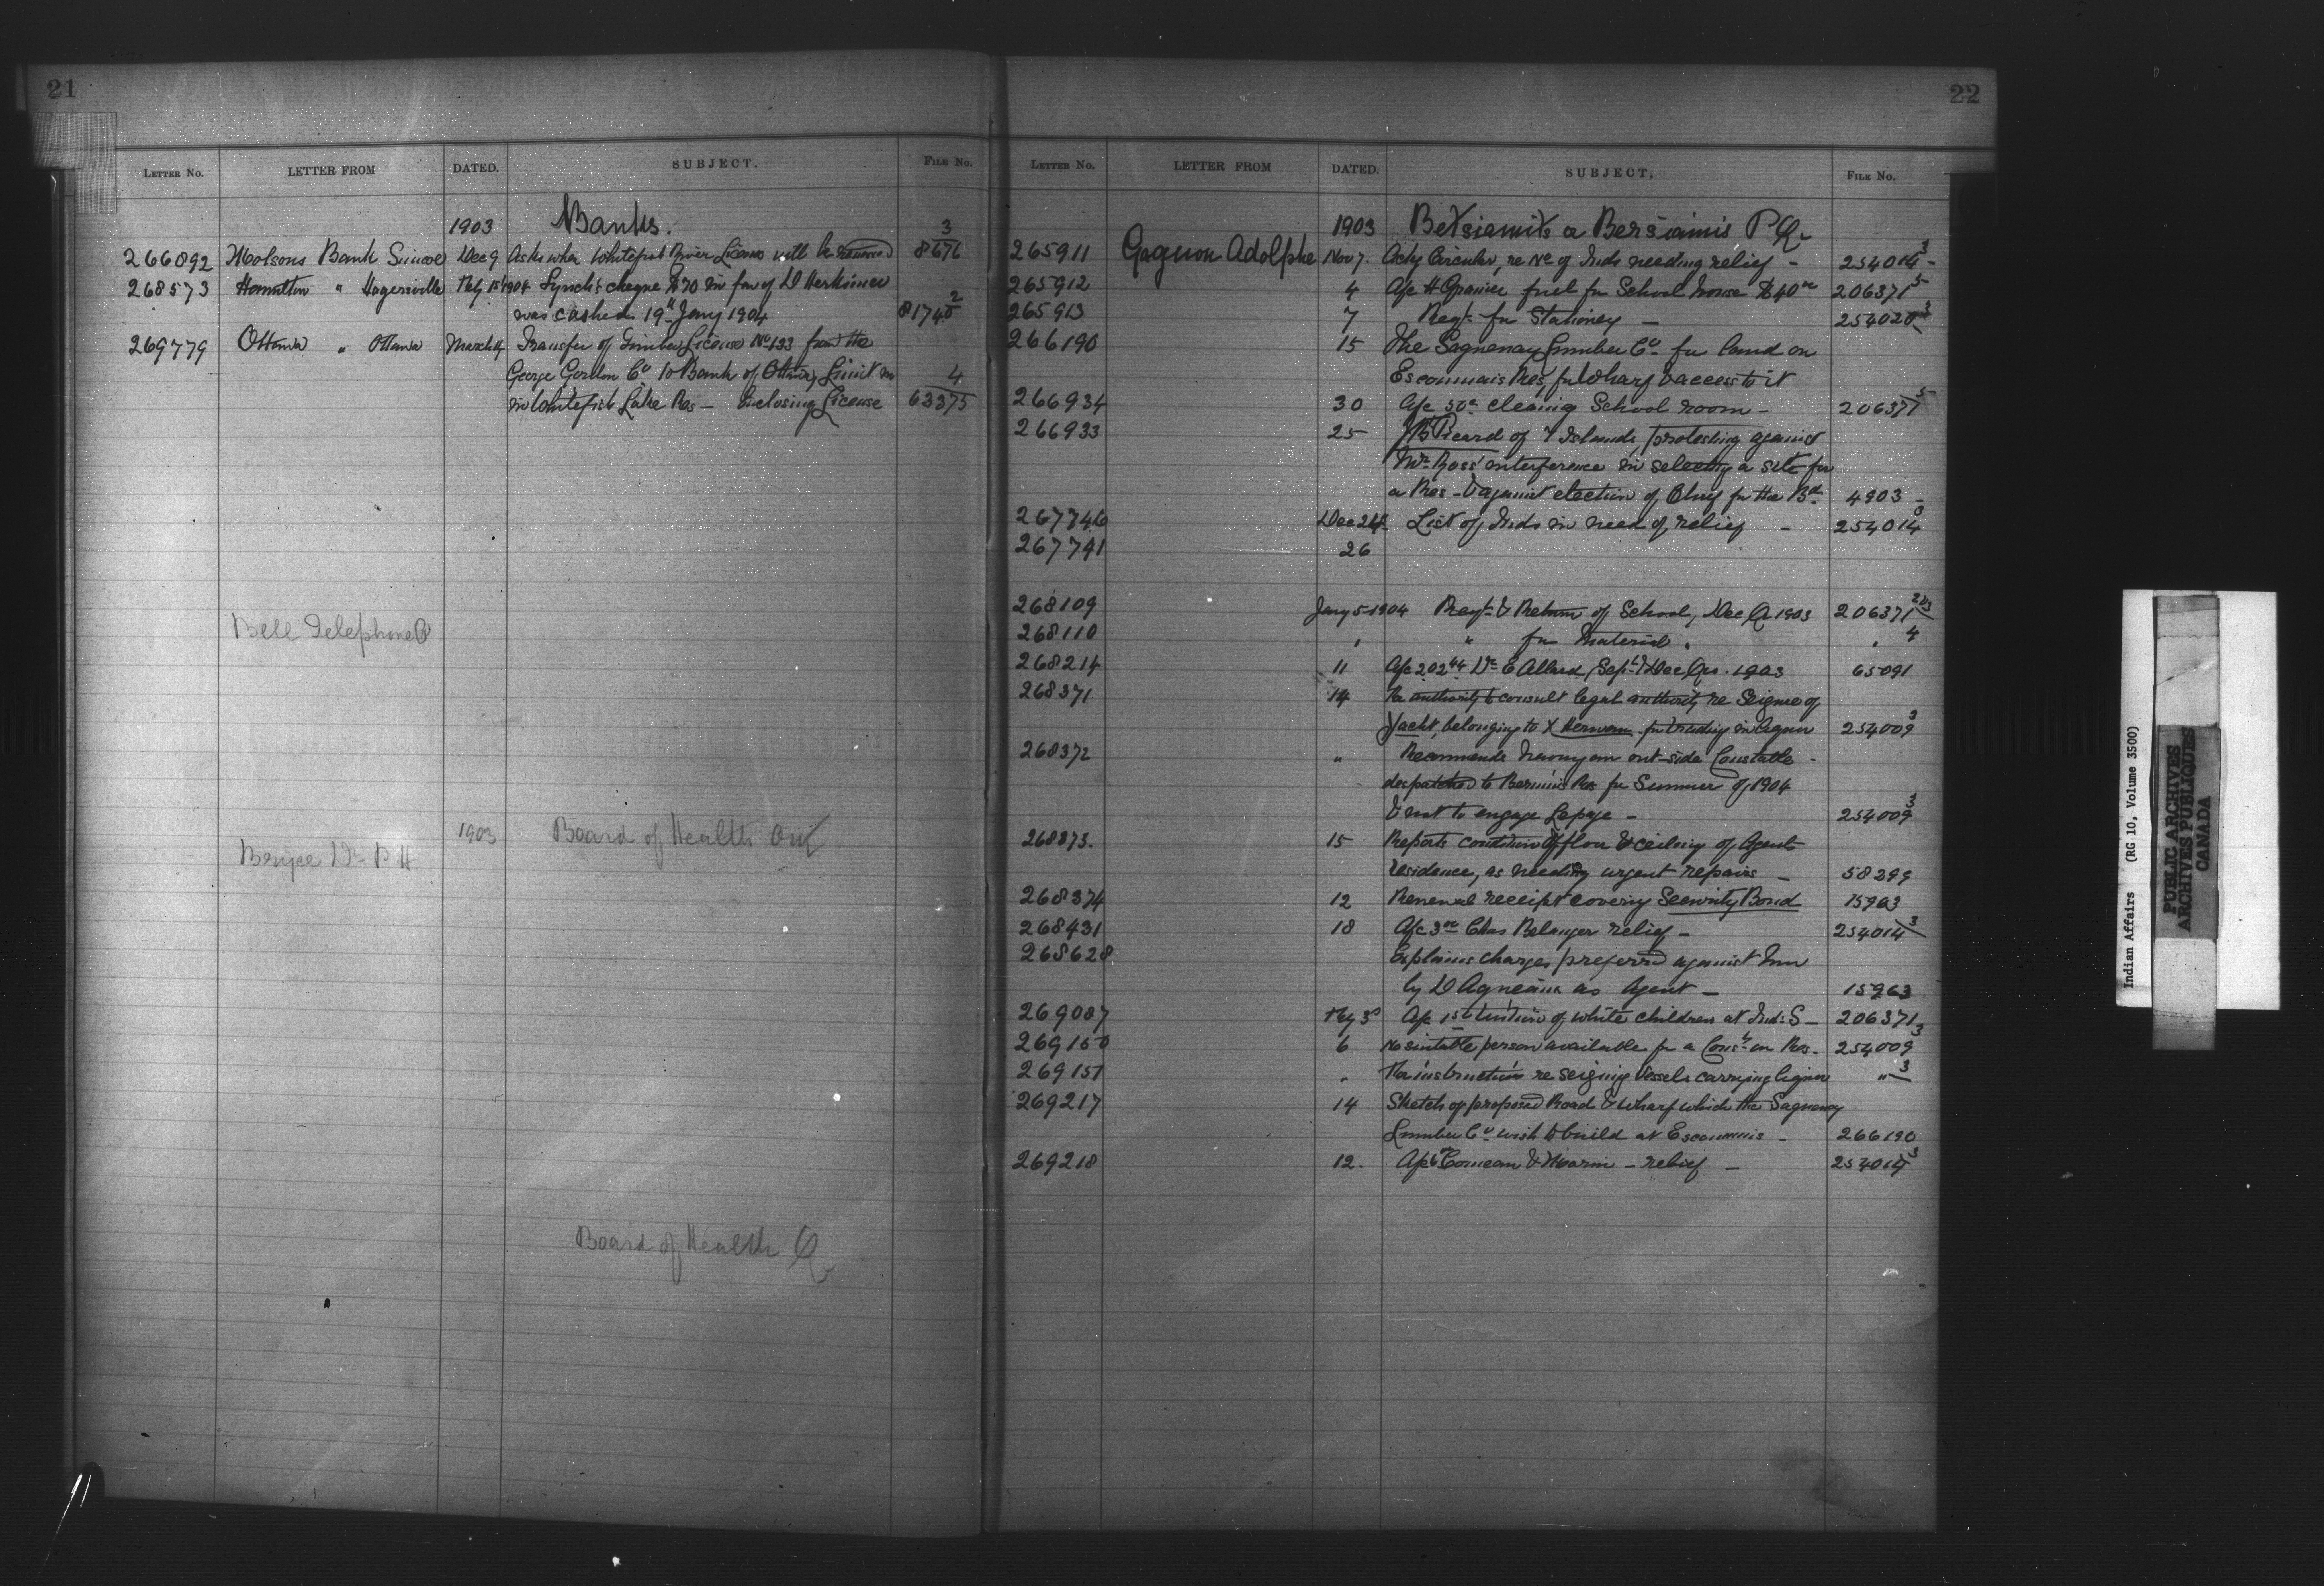 21
LETTER No. LETTER FROM DATED. SUBJECT. FILE No.
1903 Banks. 3
266892 Molsons Bank Simcoe Dec 9 Asks when Whitefish River License will be renewed 8676
268573 Hamilton " Hagersville Feby 15 1904 Lynch's cheque $70 in fav of D Herkimer
was cashed 19th Jany 1904 81740 2
269779 Ottawa " Ottawa March Transfer of Timber License No 133 from the
George Gordon Co to Bank of Ottawa, Limit in 4
in Whitefish Lake Res — Enclosing License 63375
Bell Telephone Co
1903 Board of Health Ont
Bryce Dr P H
Board of Health Q
22
LETTER No. LETTER FROM DATED. SUBJECT. FILE No.
1903 Betsiamits or Bersiamis P Q.
265911 Gagnon Adolphe Nov 7. Ackg Circular, re No of Inds needing relief — 254014 3
265912 4 A/c H fuel for School house $40 00 206371 5
265913 7 Reqt for Stationery — 254020 3
266190 15 The Saguenay Lumber Co for land on
Escoumais Res, for Wharf & access to it
266934 30 A/c 50c cleaning School room — 206371 5
266933 25 Picard of 7 Islands, protesting against
Mr Ross' interference in selecting a site for
a Res — & against election of Chief for the Bd 4903 —
267746 Dec 24 List of Inds in need of relief — 254014 3
267791 26
268109 Jany 5 1904 Reqt & Return of School, Dec Qr 1903 206371 2&3
268110 " " for Material " " 4
268214 11 A/c 202 44 Dr E Allard, Sept & Dec Qrs. 1903 65091
268371 14 For authority to consult legal authority re Seizure of
Yacht, belonging to X for trading in liquor 254009 3
268372 " Recommends having an out-side Constable
despatched to Bersimis Res for Summer of 1904
& not to engage Lepage — 254009 3
268373. 15 Reports condition of floor & ceiling of Agents
residence, as needing urgent repairs — 58299
268374 12 Renewal receipt covering Security Bond 15963
268431 18 A/c 3 00 Chas Belanger relief — 254014 3
268628 Explains charges preferred against him
by D as Agent — 15963
269087 Feby 3 A/c 1st tuition of white children at Ind: S — 206371
269150 6 No suitable person available for a Const on Res. 254009 3
269151 " For instructions re seizing Vessels carrying liquor " 3
269217 14 Sketch of proposed Road & Wharf which the Saguenay
Lumber Co wish to build at Escoumis — 266190
269218 12. A/c 6 00 Comeau & Morin — relief — 254014 3
Indian Affairs (RG 10, Volume 3500)
PUBLIC ARCHIVES
ARCHIVES PUBLIQUES
CANADA